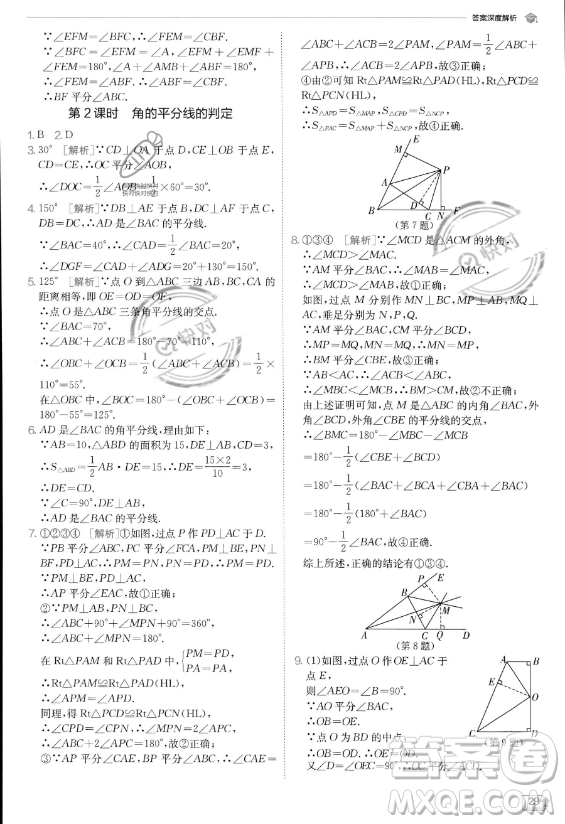 答案深度解析
∵∠EBF=∠AMB, ∴∠EBF=∠AMF.
∵∠FEM=∠A+∠AMF=∠EBF+
∠FEM=180°, ∠A+∠AMB+∠ABM=180°,
∴BF平分∠ABM.
第2课时 角的平分线的判定
1. B 2. D
3. 30° [解析]∵CD⊥OA于点D,CE⊥OB于点E,
CD=CE,∴OC平分∠AOB.
∴∠AOC=1/2∠AOB=1/2×60°=30°.
4. 150° [解析]∵DB⊥AE于点B,DC⊥AF于点C,
DB=DC,∴AD是∠BAC的平分线.
∵∠BAC=40°,∴∠CAD=1/2∠BAC=20°.
∴∠DGF=∠CAD+∠ADG=20°+130°=150°.
5. 125° [解析]∵点O到△ABC三边AB,BC,CA的
距离OF=OD=OE,
∴点O是△ABC三条角平分线的交点.
∵∠BAC=70°,
∴∠ABC+∠ACB=180°-70°=110°.
∴∠OBC+∠OCB=1/2(∠ABC+∠ACB)=1/2×
110°=55°.
在△OBC中,∠BOC=180°-(∠OBC+∠OCB)=
180°-55°=125°.
6. AD是∠BAC的角平分线,理由如下:
∵AB=10,△ABD的面积为15,DE⊥AB,
∴S△ABD=1/2AB·DE=15,∴DE=15×2/10=3,
∴DE=CD.
∵∠C=90°,∴DC⊥AC.
∴AD是∠BAC的平分线.
7. ①②③④ [解析]①如图,过点P作PD⊥AC于D.
∵PB平分∠ABC,PC平分∠FCA,PM⊥BE,
PN⊥BF,PD⊥AC,∴PM=PN,PN=PD.∴PM=PD.
∵PM⊥BE,PD⊥AC,
∴AP平分∠EAC,故①正确;
②∵PM⊥AB,PN⊥BC,
∴∠ABC+90°+∠MPN+90°=360°.
∴∠ABC+∠MPN=180°.
在Rt△PAM和Rt△PAD中,{PM=PD,
PA=PA,
∴Rt△PAM≌Rt△PAD(HL).
∴∠APM=∠APD.
同理,得Rt△PCD≌Rt△PCN(HL),
∴∠CPD=∠CPN.∴∠MPN=2∠APC.
∴∠ABC+2∠APC=180°,故②正确;
③∵AP平分∠CAE,BP平分∠ABC,∴∠CAE=
∠ABC+∠ACB=2∠PAM,∠PAM=1/2∠ABC+
∠APB.∴∠ACB=2∠APB,故③正确;
④由②可知Rt△PAM≌Rt△PAD(HL),
Rt△PCD≌Rt△PCN(HL),
∴S△APD=S△APM,S△CPD=S△NCP.
∴S△APM+S△NCP=S△APC,故④正确.
E
M
P
A
D
B
C
N
F
(第7题)
8. ①③④ [解析]∵∠MCD是△ACM的外角,
∴∠MCD>∠MAC.
∵∠MAB=∠MAC,
∴∠MCD>∠MAB,故①正确;
如图,过点M分别作MN⊥BC,MP⊥AB,MQ⊥
AC,垂足分别为N,P,Q,
∴MP=MQ,MN=MQ.∴MP=MN.
∴BM平分∠CBE.∴∠MBC=∠MBE.
∵AB<AC,∴∠ACB<∠ABC.
∴∠MBC<∠MCB.∴BM>CM,故②不正确,③
正确;
由上述证明可知,点M是△ABC的内角∠BAC、外
角∠CBE、外角∠BCD的平分线的交点,
∴∠BMC=180°-∠MBC-∠MCB
=180°-1/2(∠CBE+∠BCD)
=180°-1/2(180°+∠BAC)
=90°-1/2∠BAC,故④正确.
综上所述,正确的结论有①③④.
E
P
B
M
N
A
C
Q
D
(第8题)
9. (1)如图,过点O作OE⊥AC于
点E,
则∠AEO=90°.
∵AO平分∠BAC,
∴OB=OE.
∵点O为BD的中点,
∴OB=OD.∴OE=OD.
又∠D=∠OEC=90°,∴CO平分∠ACD.
A
B
E
O
C
D
(第9题)
29
快对
答案圈
MXQE.COM